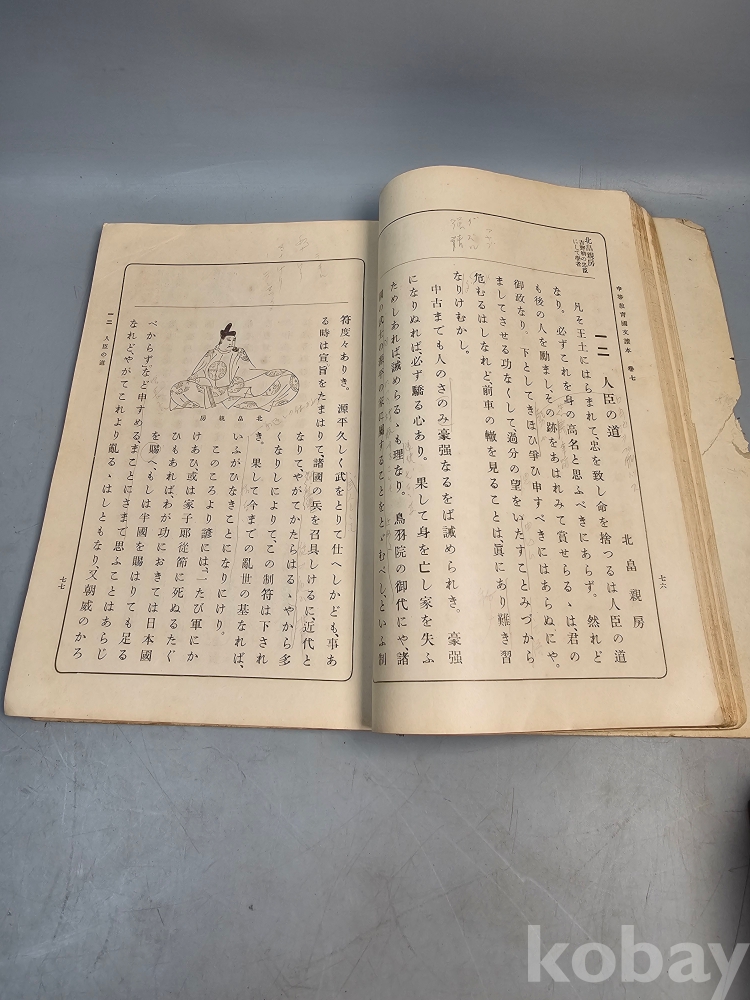 中等教育國文讀本 卷七
七六
一二 人臣の道
北畠親房
北畠親房
吉野朝の忠臣
にして學者
凡そ王土にはらまれて、忠を致し命を捨つるは人臣の道
なり。必ずこれを身の高名と思ふべきにあらず。然れど
も後の人を勵まし、その跡をあはれみて賞せらるゝは、君の
御政なり。下としてきほひ爭ひ申すべきにはあらぬにや。
ましてさせる功なくして、過分の望をいたすことみづから
危むるはしなれど、前車の轍を見ることは、眞にあり難き習
なりけむかし。
中古までも人のさのみ豪强なるをば誡められき。豪强
になりぬれば、必ず驕る心あり。果して身を亡し家を失ふ
ためしあれば、誡めらるゝも理なり。鳥羽院の御代にや、諸
國の武士の源平の家に屬することをとゞむべし、といふ制
符度々ありき。源平久しく武をとりて仕へしかども、事あ
る時は宣旨をたまはりて、諸國の兵を召具しけるに、近代と
なりて、やがてかたらはるゝやから多
くなりしによりて、この制符は下され
き。果して今までの亂世の基なれば、
いふがひなきことになりにけり。
このころより諺には、一たび軍にか
けあひ、或は家子郎從節に死ぬるたぐ
ひもあれば、わが功におきては日本國
を賜へ、もしは半國を賜はりても足る
べからずなど申すめる。まことにさまで思ふことはあらじ
なれど、やがてこれより亂るゝはしともなり、又朝威のかろ
北畠親房
一二 人臣の道
七七
kobay